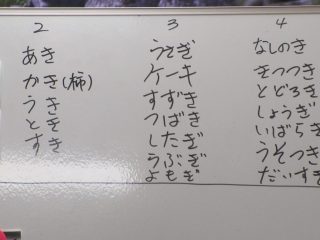 2
あき
かき(柿)
うき
とき
すき
3
うさぎ
ケーキ
すずき
つばき
したぎ
うぶぎ
よもぎ
4
なしのき
きつつき
とどろき
しょうぎ
いばらき
うそつき
だいすき